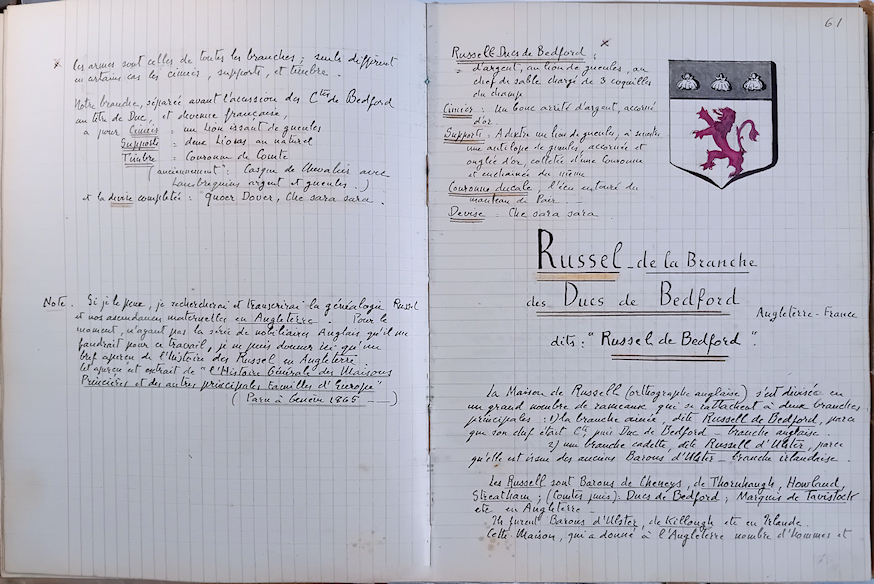 × les armes sont celles de toutes les branches ; seuls diffèrent
en certains cas les cimiers, supports, et timbre.
Notre branche, séparée avant l'accession des Ctes de Bedford
au titre de Duc, et devenue française,
a pour Cimier = un lion issant de gueules
Supports = deux lions au naturel
Timbre = Couronne de Comte
(anciennement : Casque de Chevalier avec
lambrequins argent et gueules.)
et la devise complétée : Quoer Dover, Che sara sara.
Note. Si je le peux, je rechercherai et transcrirai la généalogie Russel
et nos ascendances maternelles en Angleterre. Pour le
moment, n'ayant pas la série de nobiliaires Anglais qu'il me
faudrait pour ce travail, je ne puis donner ici qu'un
bref aperçu de l'histoire des Russel en Angleterre
Cet aperçu est extrait de "l'Histoire Générale des Maisons
Princières et des autres principales familles d'Europe"
(Paru à Genève 1865 — )
61
Russell Ducs de Bedford : ×
= d'argent, au lion de gueules, au
chef de sable chargé de 3 coquilles
du champ
Cimier : Un bouc arrêté d'argent, accorné
d'or.
Supports : A dextre un lion de gueules, à senestre
une antilope de gueules, accornée et
onglée d'or, colletée d'une couronne
et enchaînée du même
Couronne ducale, l'écu entouré du
manteau de Pair. —
Devise : Che sara sara.
Russel de la Branche
des Ducs de Bedford
Angleterre - France
dits : "Russel de Bedford".
La Maison de Russell (orthographe anglaise) s'est divisée en
un grand nombre de rameaux qui se rattachent à deux branches
principales : 1) la branche aînée, dite Russell de Bedford, parce
que son chef était Cte, puis Duc de Bedford — branche anglaise.
2) une branche cadette, dite Russell d'Ulster, parce
qu'elle est issue des anciens Barons d'Ulster — branche irlandaise.
Les Russell sont Barons de Cheneys, de Thornhaugh, Howland,
Streatham ; (Comtes puis) Ducs de Bedford ; Marquis de Tavistock
etc en Angleterre —
Ils furent Barons d'Ulster, de Killough etc en Irlande.
Cette Maison, qui a donné à l'Angleterre nombre d'hommes et